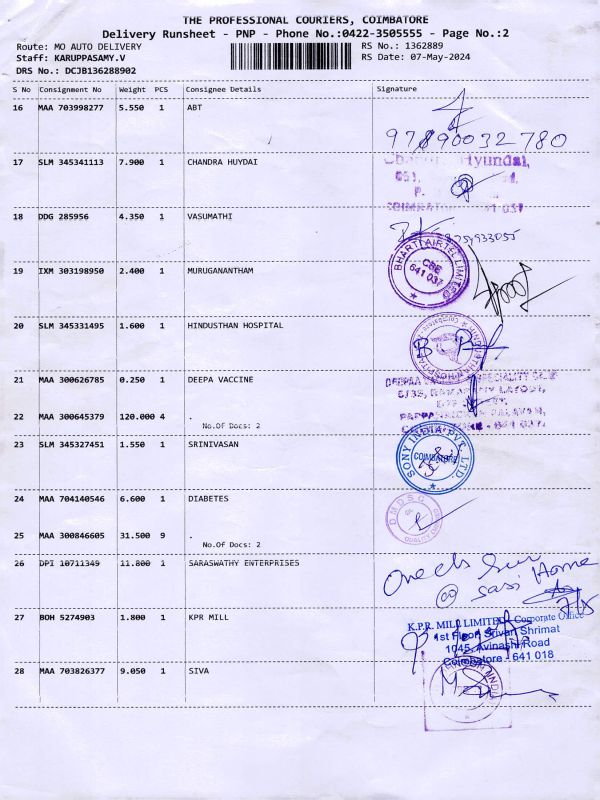 THE PROFESSIONAL COURIERS, COIMBATORE
Delivery Runsheet - PNP - Phone No.:0422-3505555 - Page No.:2
Route: MO AUTO DELIVERY RS No.: 1362889
Staff: KARUPPASAMY.V RS Date: 07-May-2024
DRS No.: DCJB136288902
S No Consignment No Weight PCS Consignee Details Signature
16 MAA 703998277 5.550 1 ABT
97890032780
17 SLM 345341113 7.900 1 CHANDRA HUYDAI
Hyundai,
18 DDG 285956 4.350 1 VASUMATHI
BHARTI AIRTEL LIMITED
CBE
641 037
19 IXM 303198950 2.400 1 MURUGANANTHAM
20 SLM 345331495 1.600 1 HINDUSTHAN HOSPITAL
HINDUSTHAN HOSPITAL
21 MAA 300626785 0.250 1 DEEPA VACCINE
22 MAA 300645379 120.000 4 .
No.Of Docs: 2
23 SLM 345327451 1.550 1 SRINIVASAN
SONY INDIA PVT. LTD.
COIMBATORE
24 MAA 704140546 6.600 1 DIABETES
DMDSC
25 MAA 300846605 31.500 9 .
No.Of Docs: 2
26 DPI 10711349 11.800 1 SARASWATHY ENTERPRISES
@ sasi Home
27 BOH 5274903 1.800 1 KPR MILL
K.P.R. MILL LIMITED Corporate Office
1st Floor Srivari Shrimat
1045, Avinashi Road
Coimbatore - 641 018
28 MAA 703826377 9.050 1 SIVA